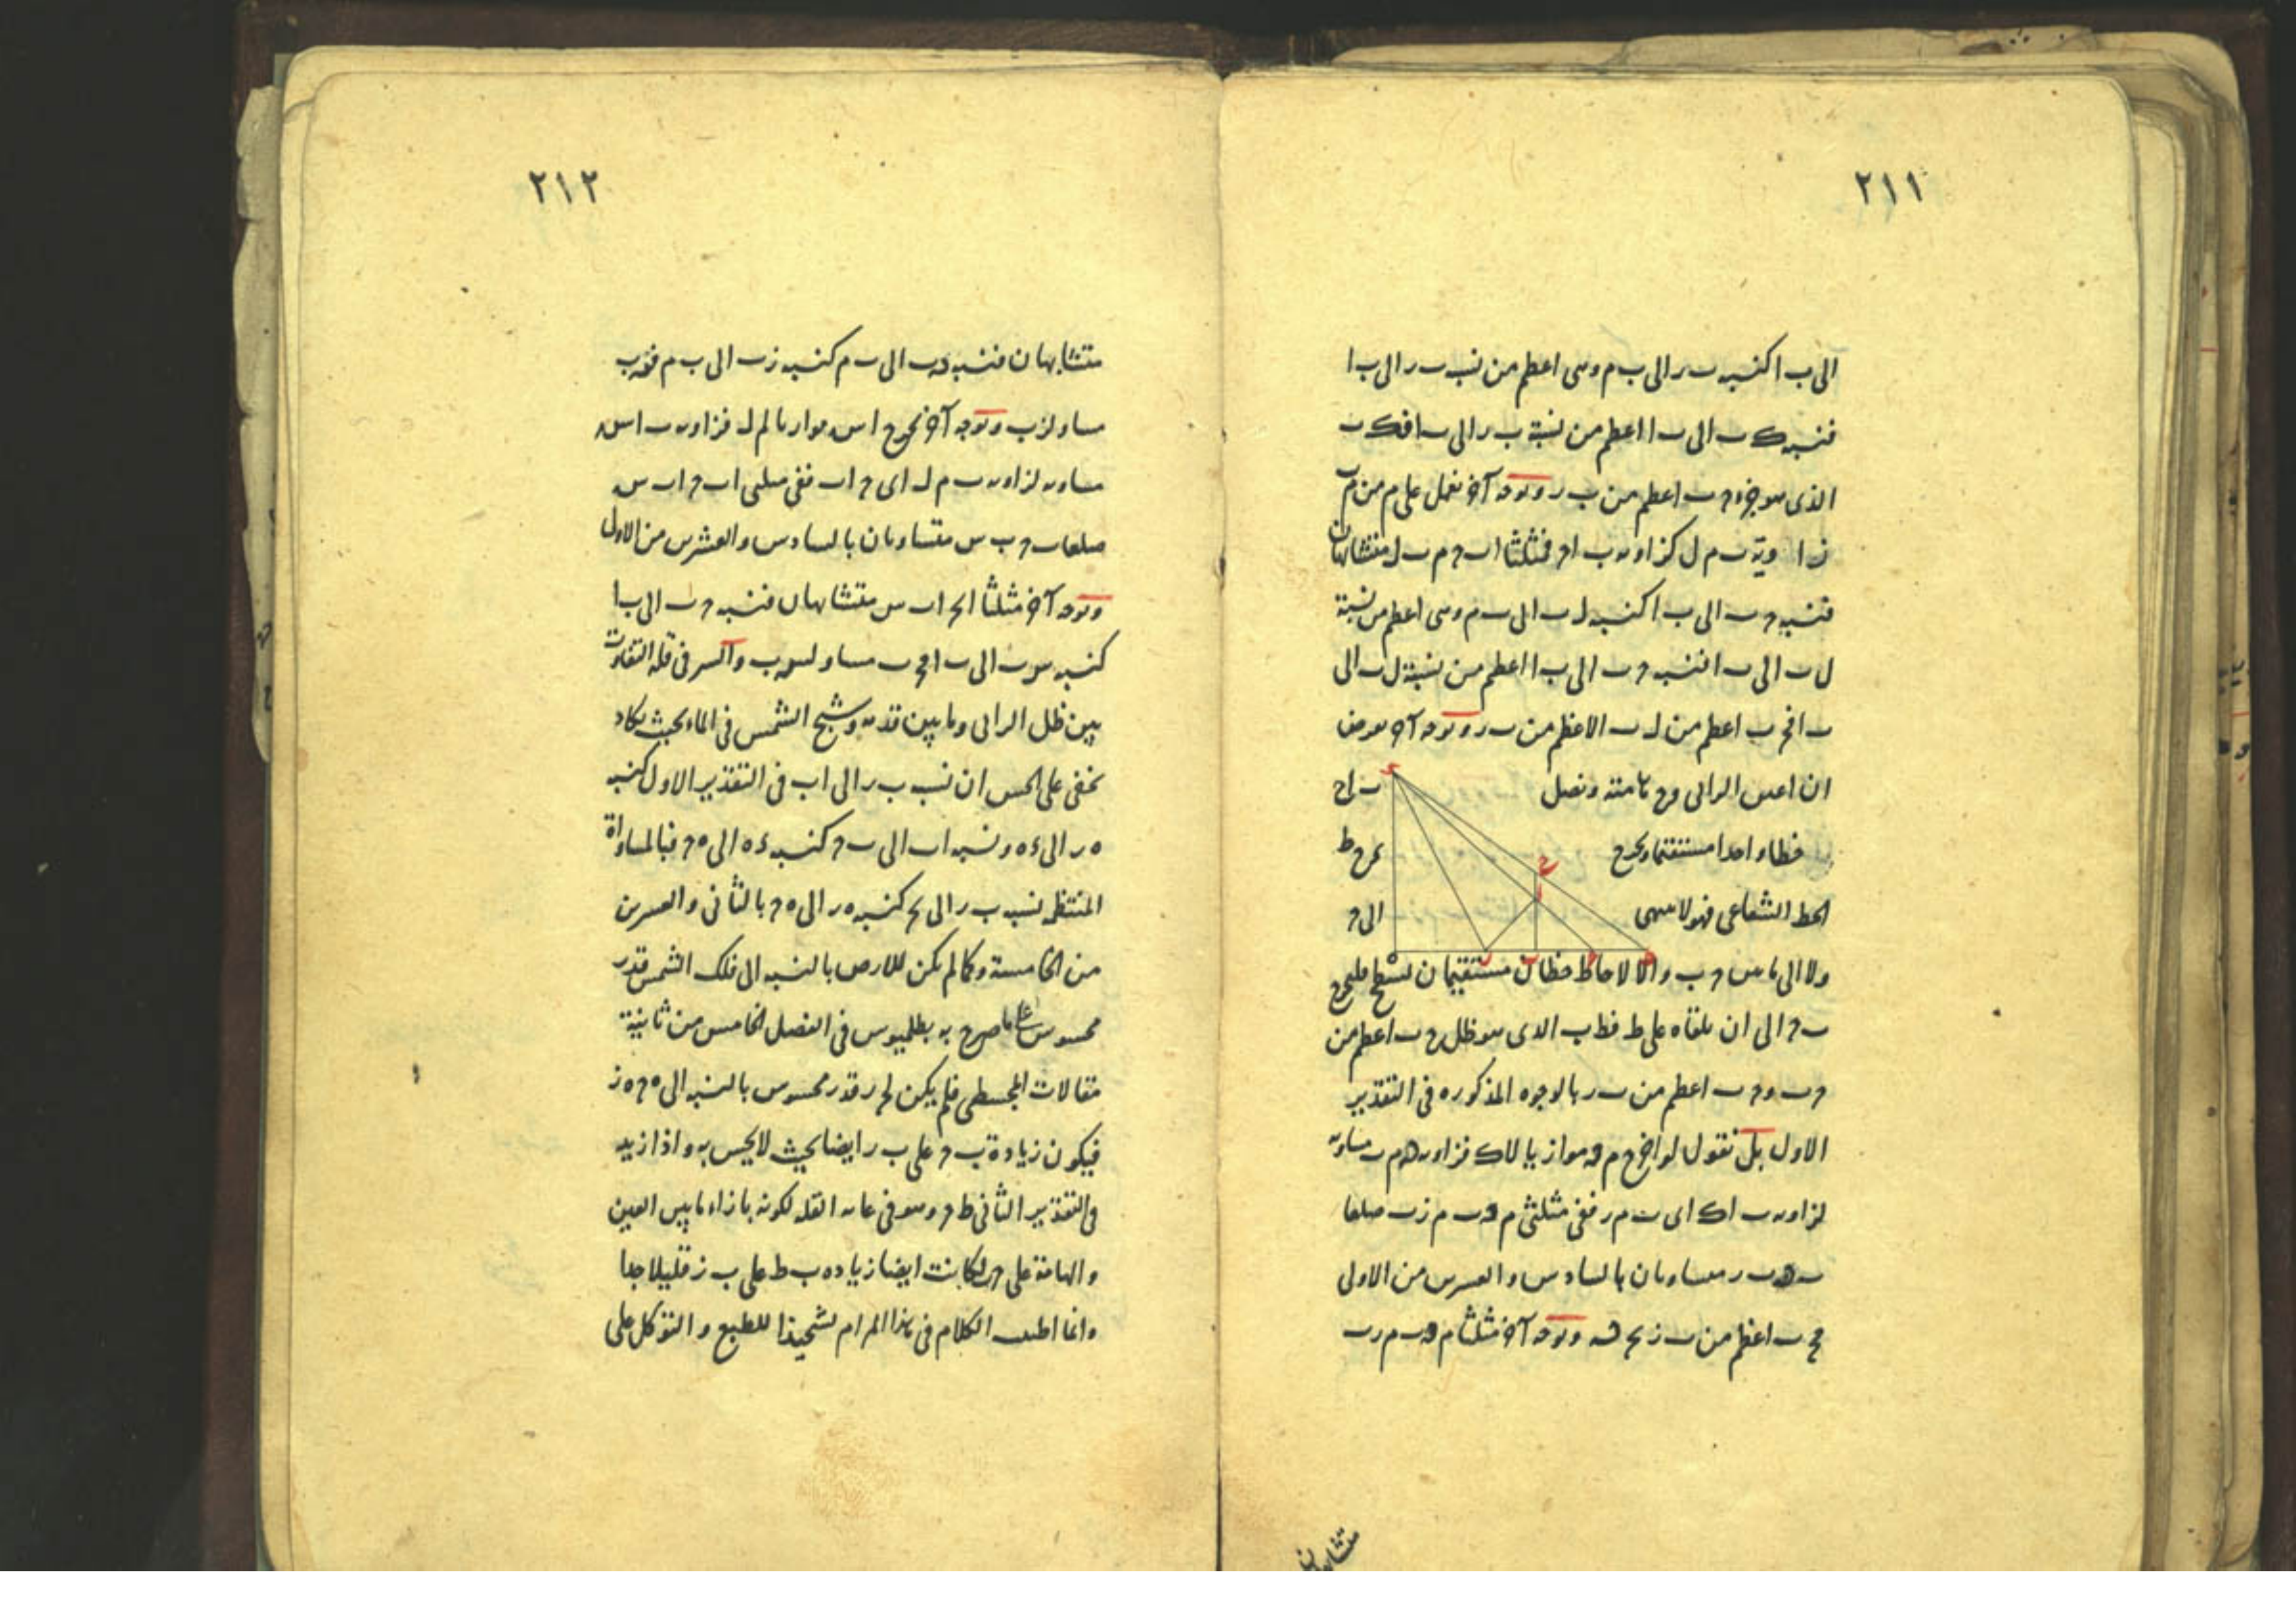 ٢١١
الى ب ا كنسبة ب ر الى ب م وهى اعظم من نسبة ب ر الى ب ا
فنسبة ك ب الى ب ا اعظم من نسبة ب ر الى ب ا فك ب
الذى هو جزء ح ب اعظم من ب ر وبوجه آخر نعمل على م من م ب
زا وية ب م ل كزاوية ب ا ح فمثلثا ا ب ح م ب ل متشابهان
فنسبة ح ب الى ب ا كنسبة ل ب الى ب م وهى اعظم من نسبة
ل ب الى ب ا فنسبة ح ب الى ب ا اعظم من نسبة ل ب الى
ب ا فح ب اعظم من ل ب الاعظم من ب ر وبوجه آخر نعرض
ان ا عين الرائى و ح هامته ونصل ب ا ح
خطا واحدا مستقيما ويخرج ح ط
الخط الشعاعى فهو لا ينتهى الى ح
ولا الى ما بين ح ب والا لاحاط خطان مستقيمان بسطح فليخرج
ب ح الى ان يلقاه على ط فط ب الذى هو ظل ح ب اعظم من
ح ب و ح ب اعظم من ب ر بالوجوه المذكوره فى التقدير
الاول بل نقول لو اخرج م ه موازيا لاك فزاوية ه م ب مساوية
لزاوية ب ا ك اى ب م ر ففى مثلثى م ه ب م ز ب ضلعا
ب ه ب ر متساويان بالسادس والعشرين من الاولى
فح ب اعظم من ب ز وبوجه آخر مثلثا م ه ب م ر ب
متشابهان
٢١٢
متشابهان فنسبة ه ب الى ب م كنسبة ز ب الى ب م فه ب
مساو لز ب وبوجه آخر نخرج ا س موازيا لم ل فزاوية ب ا س
مساوية لزاوية ب م ل اى ح ا ب ففى مثلثى ا ب ح ا ب س
ضلعا ب ح ب س متساويان بالسادس والعشرين من الاولى
وبوجه آخر مثلثا ا ب ح ا ب س متشابهان فنسبة ح ب الى ب ا
كنسبة س ب الى ب ا فح ب مساو لس ب والسر فى قلة التفاوت
بين ظل الرائى وما بين قدمه وشبح الشمس فى الماء بحيث يكاد
يخفى على الحس ان نسبة ب ر الى ا ب فى التقدير الاول كنسبة
ه ر الى ء ه ونسبة ا ب الى ب ح كنسبة ء ه الى ه ح فبالمساواة
المنتظمة نسبة ب ر الى ب ح كنسبة ه ر الى ه ح بالثانى والعشرين
من الخامسة وكما لم يكن للارض بالنسبة الى فلك الشمس قدر
محسوس على ما صرح به بطلميوس فى الفصل الخامس من ثانية
مقالات المجسطى فلم يكن لح ر قدر محسوس بالنسبة الى ه ح ه ز
فيكون زيادة ب ح على ب ر ايضا بحيث لا يحس به واذا زيد
فى التقدير الثانى ط ح وهو فى غاية القلة لكونه بازاء ما بين العين
والهامة على ح ر لكانت ايضا زيادة ب ط على ب ز قليلا جدا
وانما اطنب الكلام فى هذا المرام تشحيذا للطبع والتوكل على